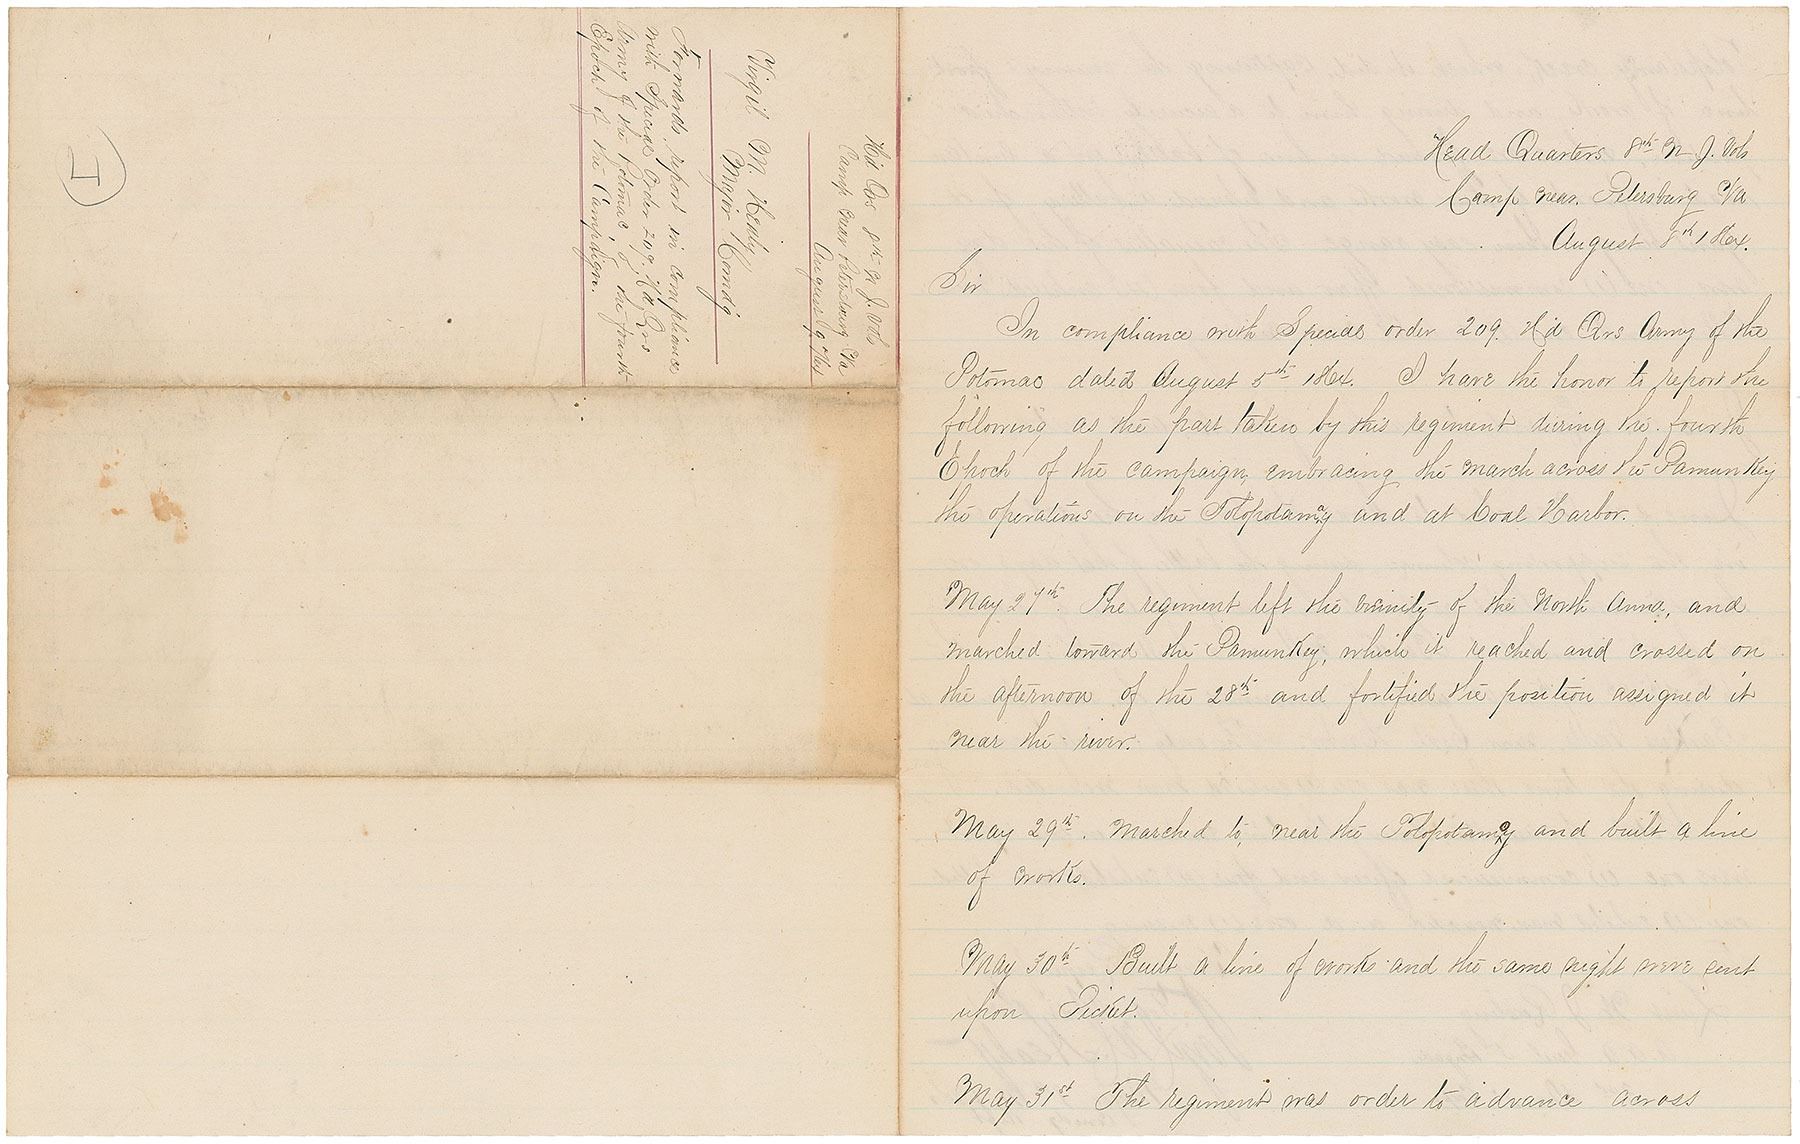 Hd Qrs 8th N J. Vols
Camp near Petersburg Va
August 9th /64
Virgil M. Healy
Major Comd'g
Forwards report in compliance
with Special Order 209. Hd Qrs
Army of the Potomac of the fourth
Epoch of the Campaign.
Head Quarters 8th N. J. Vols
Camp near Petersburg Va
August 8th 1864.
Sir
In compliance with Special order 209. Hd Qrs Army of the
Potomac dated August 5th 1864. I have the honor to report the
following as the part taken by this regiment during the fourth
Epoch of the campaign, embracing the march across the Pamunkey
the operations on the Tolopotamoy and at Coal Harbor.
May 27th. The regiment left the vicinity of the North Anna, and
marched toward the Pamunkey, which it reached and crossed on
the afternoon of the 28th and fortified the position assigned it
near the river.
May 29th. Marched to, near the Tolopotamoy and built a line
of works.
May 30th Built a line of works and the same night were sent
upon Picket.
May 31st The regiment was order to advance across